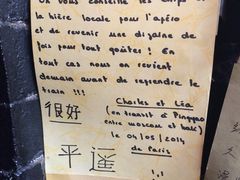 On vous conseille les chips et
la bière locale pour l'apéro
et de revenir une dizaine de
fois pour tout goûter ! En
tout cas nous on revient
demain avant de reprendre le
train !!!
很好
Charles et Léa
(en transit à Pingyao
entre moscou et bali)
le 04/05/2014
de Paris
平遥